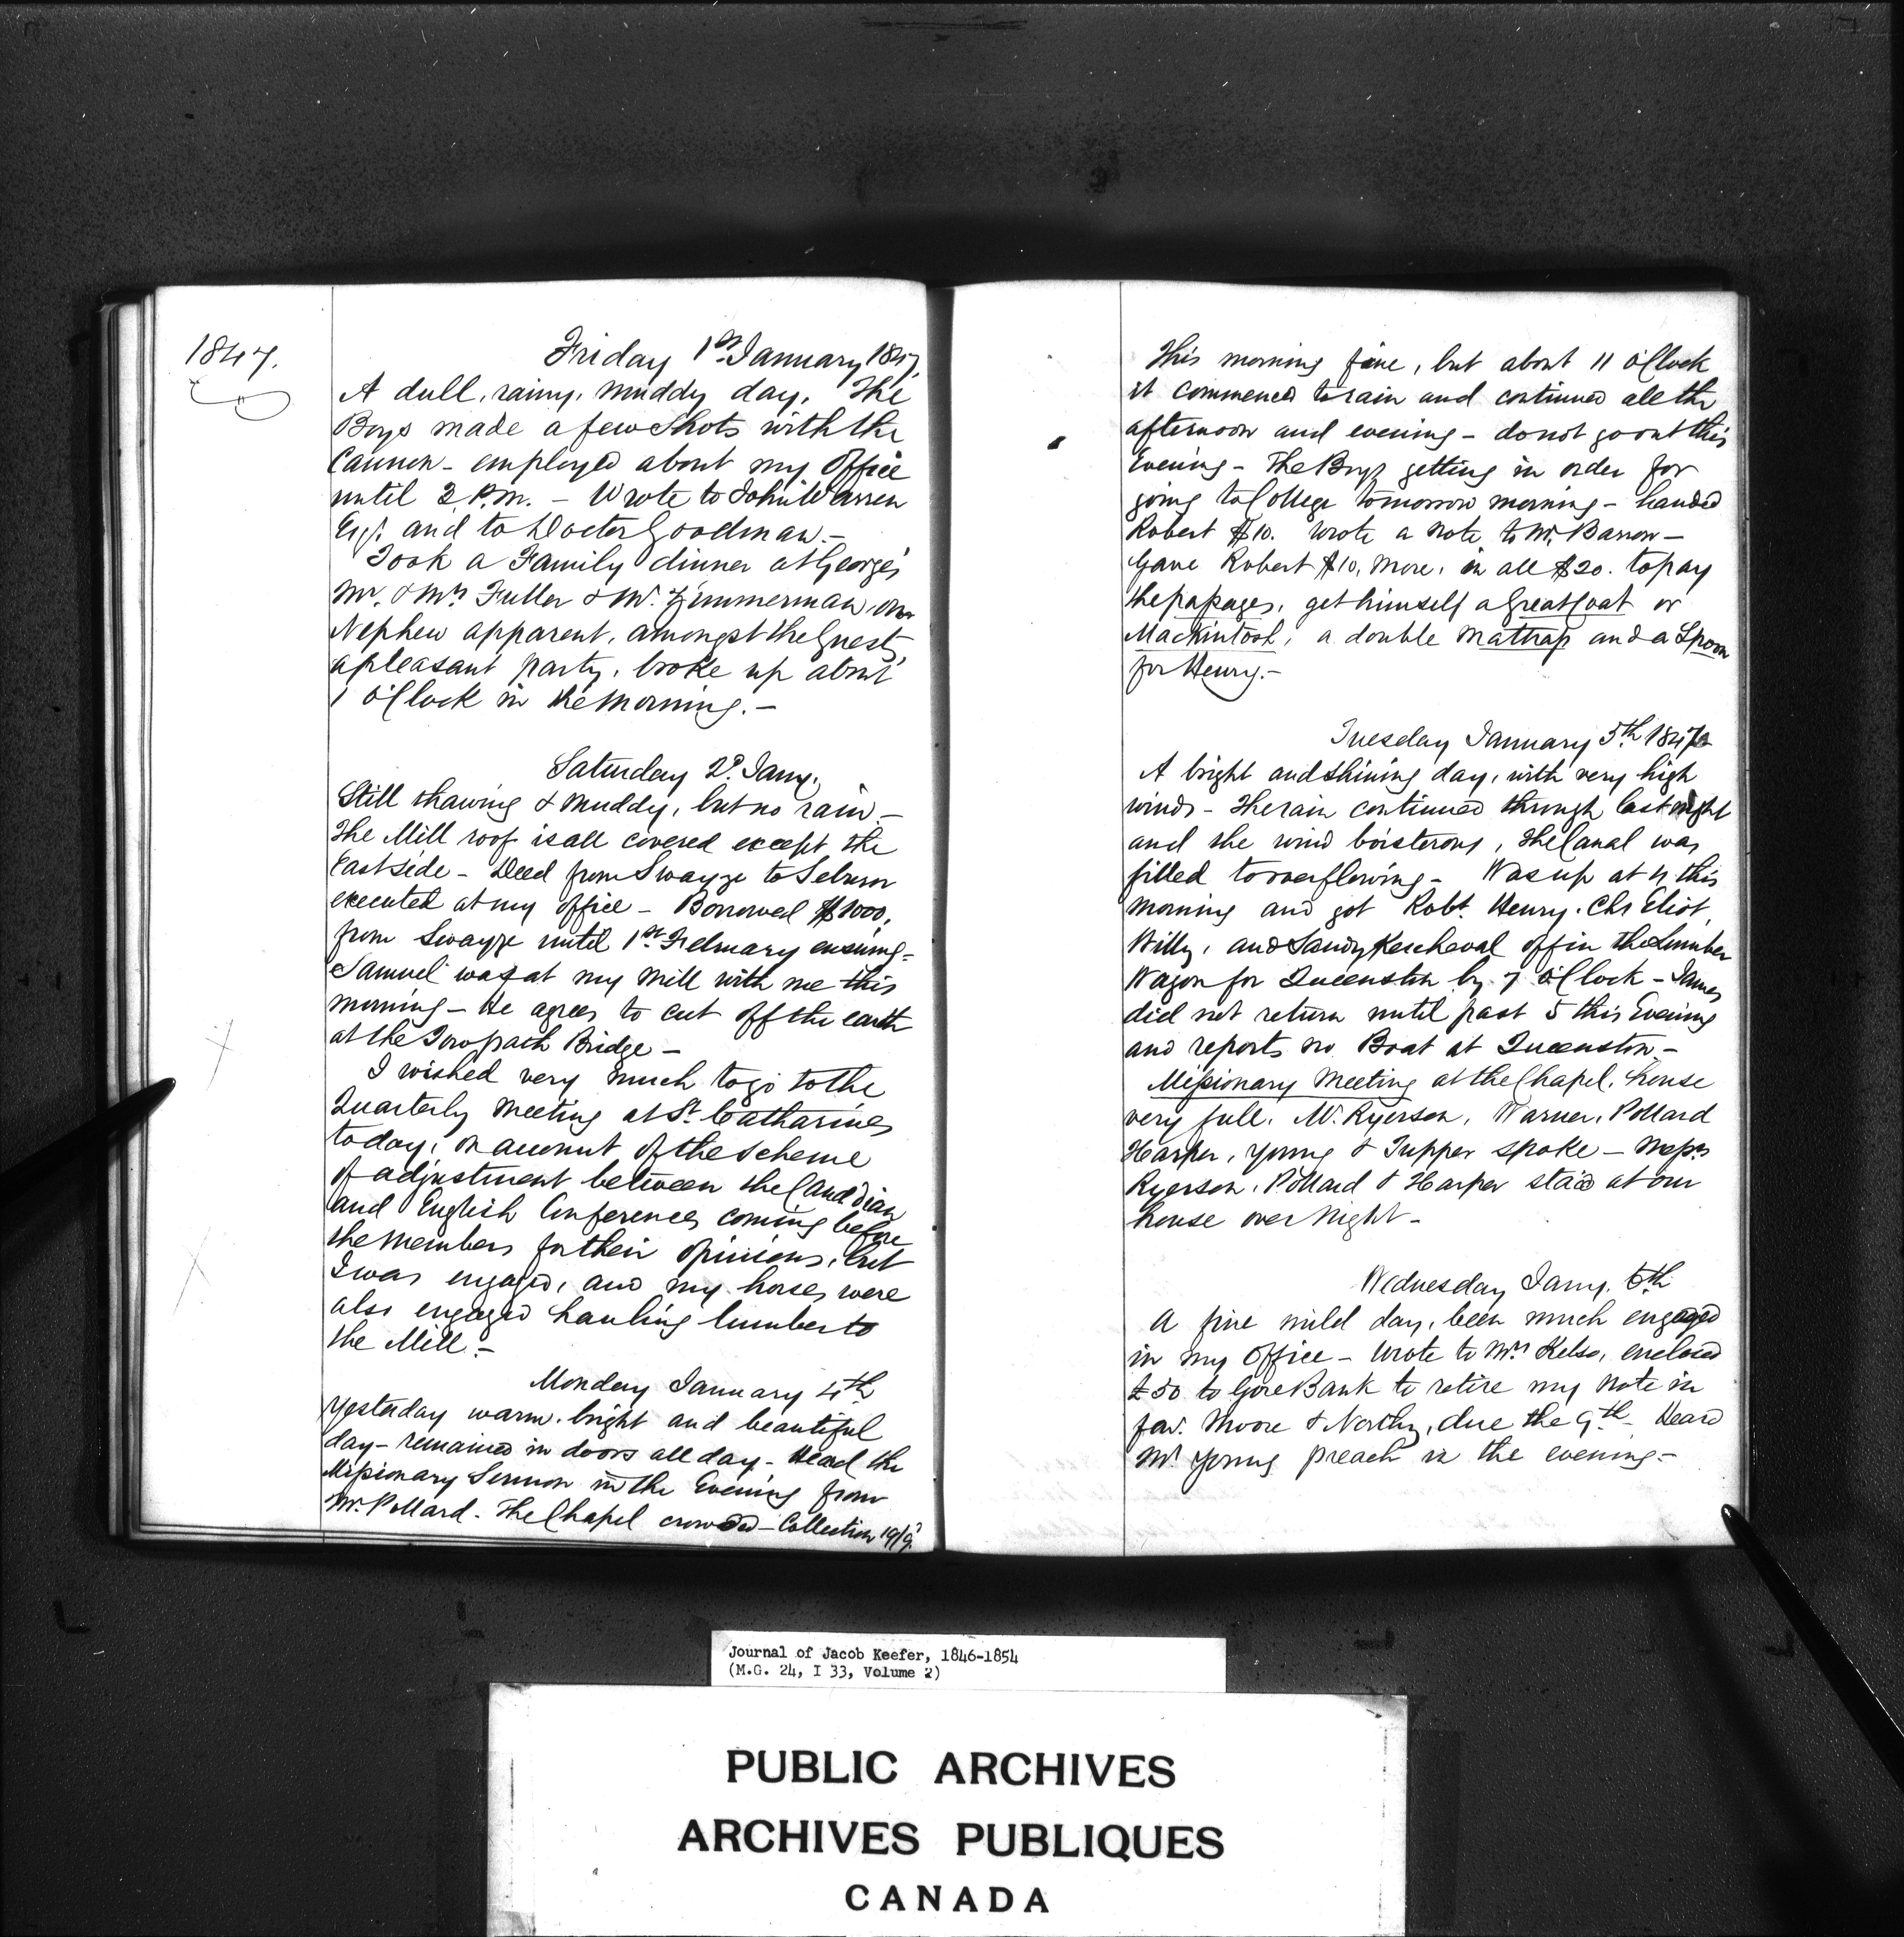 1847.
Friday 1st January 1847.
A dull, rainy, muddy day. The
Boys made a few Shots with the
Cannon - employed about my Office
until 2 P.M. - Wrote to John Warren
Esqr. and to Docter Goodman. -
Took a Family dinner at George's
Mr. & Mrs Fuller & Mr. Zimmerman, our
Nephew apparent, amongst the Guests,
a pleasant party, broke up about
1 O'Clock in the Morning. -
Saturday 2d. Jany.
Still thawing & muddy, but no rain. -
The Mill roof is all covered except the
East side - Deed from Swayze to
executed at my office - Borrowed $1000,
from Swayze until 1st February ensuing -
Samuel was at my Mill with me this
morning - He agrees to cut off the earth
at the Towpath Bridge -
I wished very much to go to the
Quarterly Meeting at St. Catharines
today, on account of the scheme
of adjustment between the Canadian
and English Conferences coming before
the Members for their opinions, but
I was engaged, and my horses were
also engaged hauling lumber to
the Mill. -
Monday January 4th
Yesterday warm, bright and beautiful
day - remained in doors all day - Head the
Missionary Sermon in the Evening from
Mr. Pollard. The Chapel crowded - Collection 19/9.
This morning fine, but about 11 O'Clock
it commenced to rain and continued all the
afternoon and evening - do not go out this
Evening - The Boys getting in order for
going to College tomorrow morning - handed
Robert $10. Wrote a Note to Mr. Barron -
Gave Robert $10, More, in all $20. to pay
the passages, get himself a Great Coat or
Mackintosh, a double Mattrass and a Spoon
for Henry. -
Tuesday January 5th 1847
A bright and shining day, with very high
winds - The rain continued through last night
and the wind boisterous, the Canal was
filled to overflowing - Was up at 4 this
morning and got Robt. Henry. Chs Eliot,
Willy, and Sandy Kercheval off in the Lumber
Wagon for Queenston by 7 O'Clock - James
did not return until past 5 this Evening
and reports no Boat at Queenston -
Missionary Meeting at the Chapel, house
very full. Mr. Ryerson, Warner, Pollard
Harper, Young & Tupper spoke - Messrs
Ryerson, Pollard & Harper staid at our
house over Night -
Wednesday Jany. 6th
A fine mild day, been much engaged
in my Office - Wrote to Mrs Kelso, enclosed
£50 to Gore Bank to retire my Note in
fav. Moore & due the 9th - Heard
Mr Young preach in the evening -
Journal of Jacob Keefer, 1846-1854
(M.G. 24, I 33, Volume 2)
PUBLIC ARCHIVES
ARCHIVES PUBLIQUES
CANADA